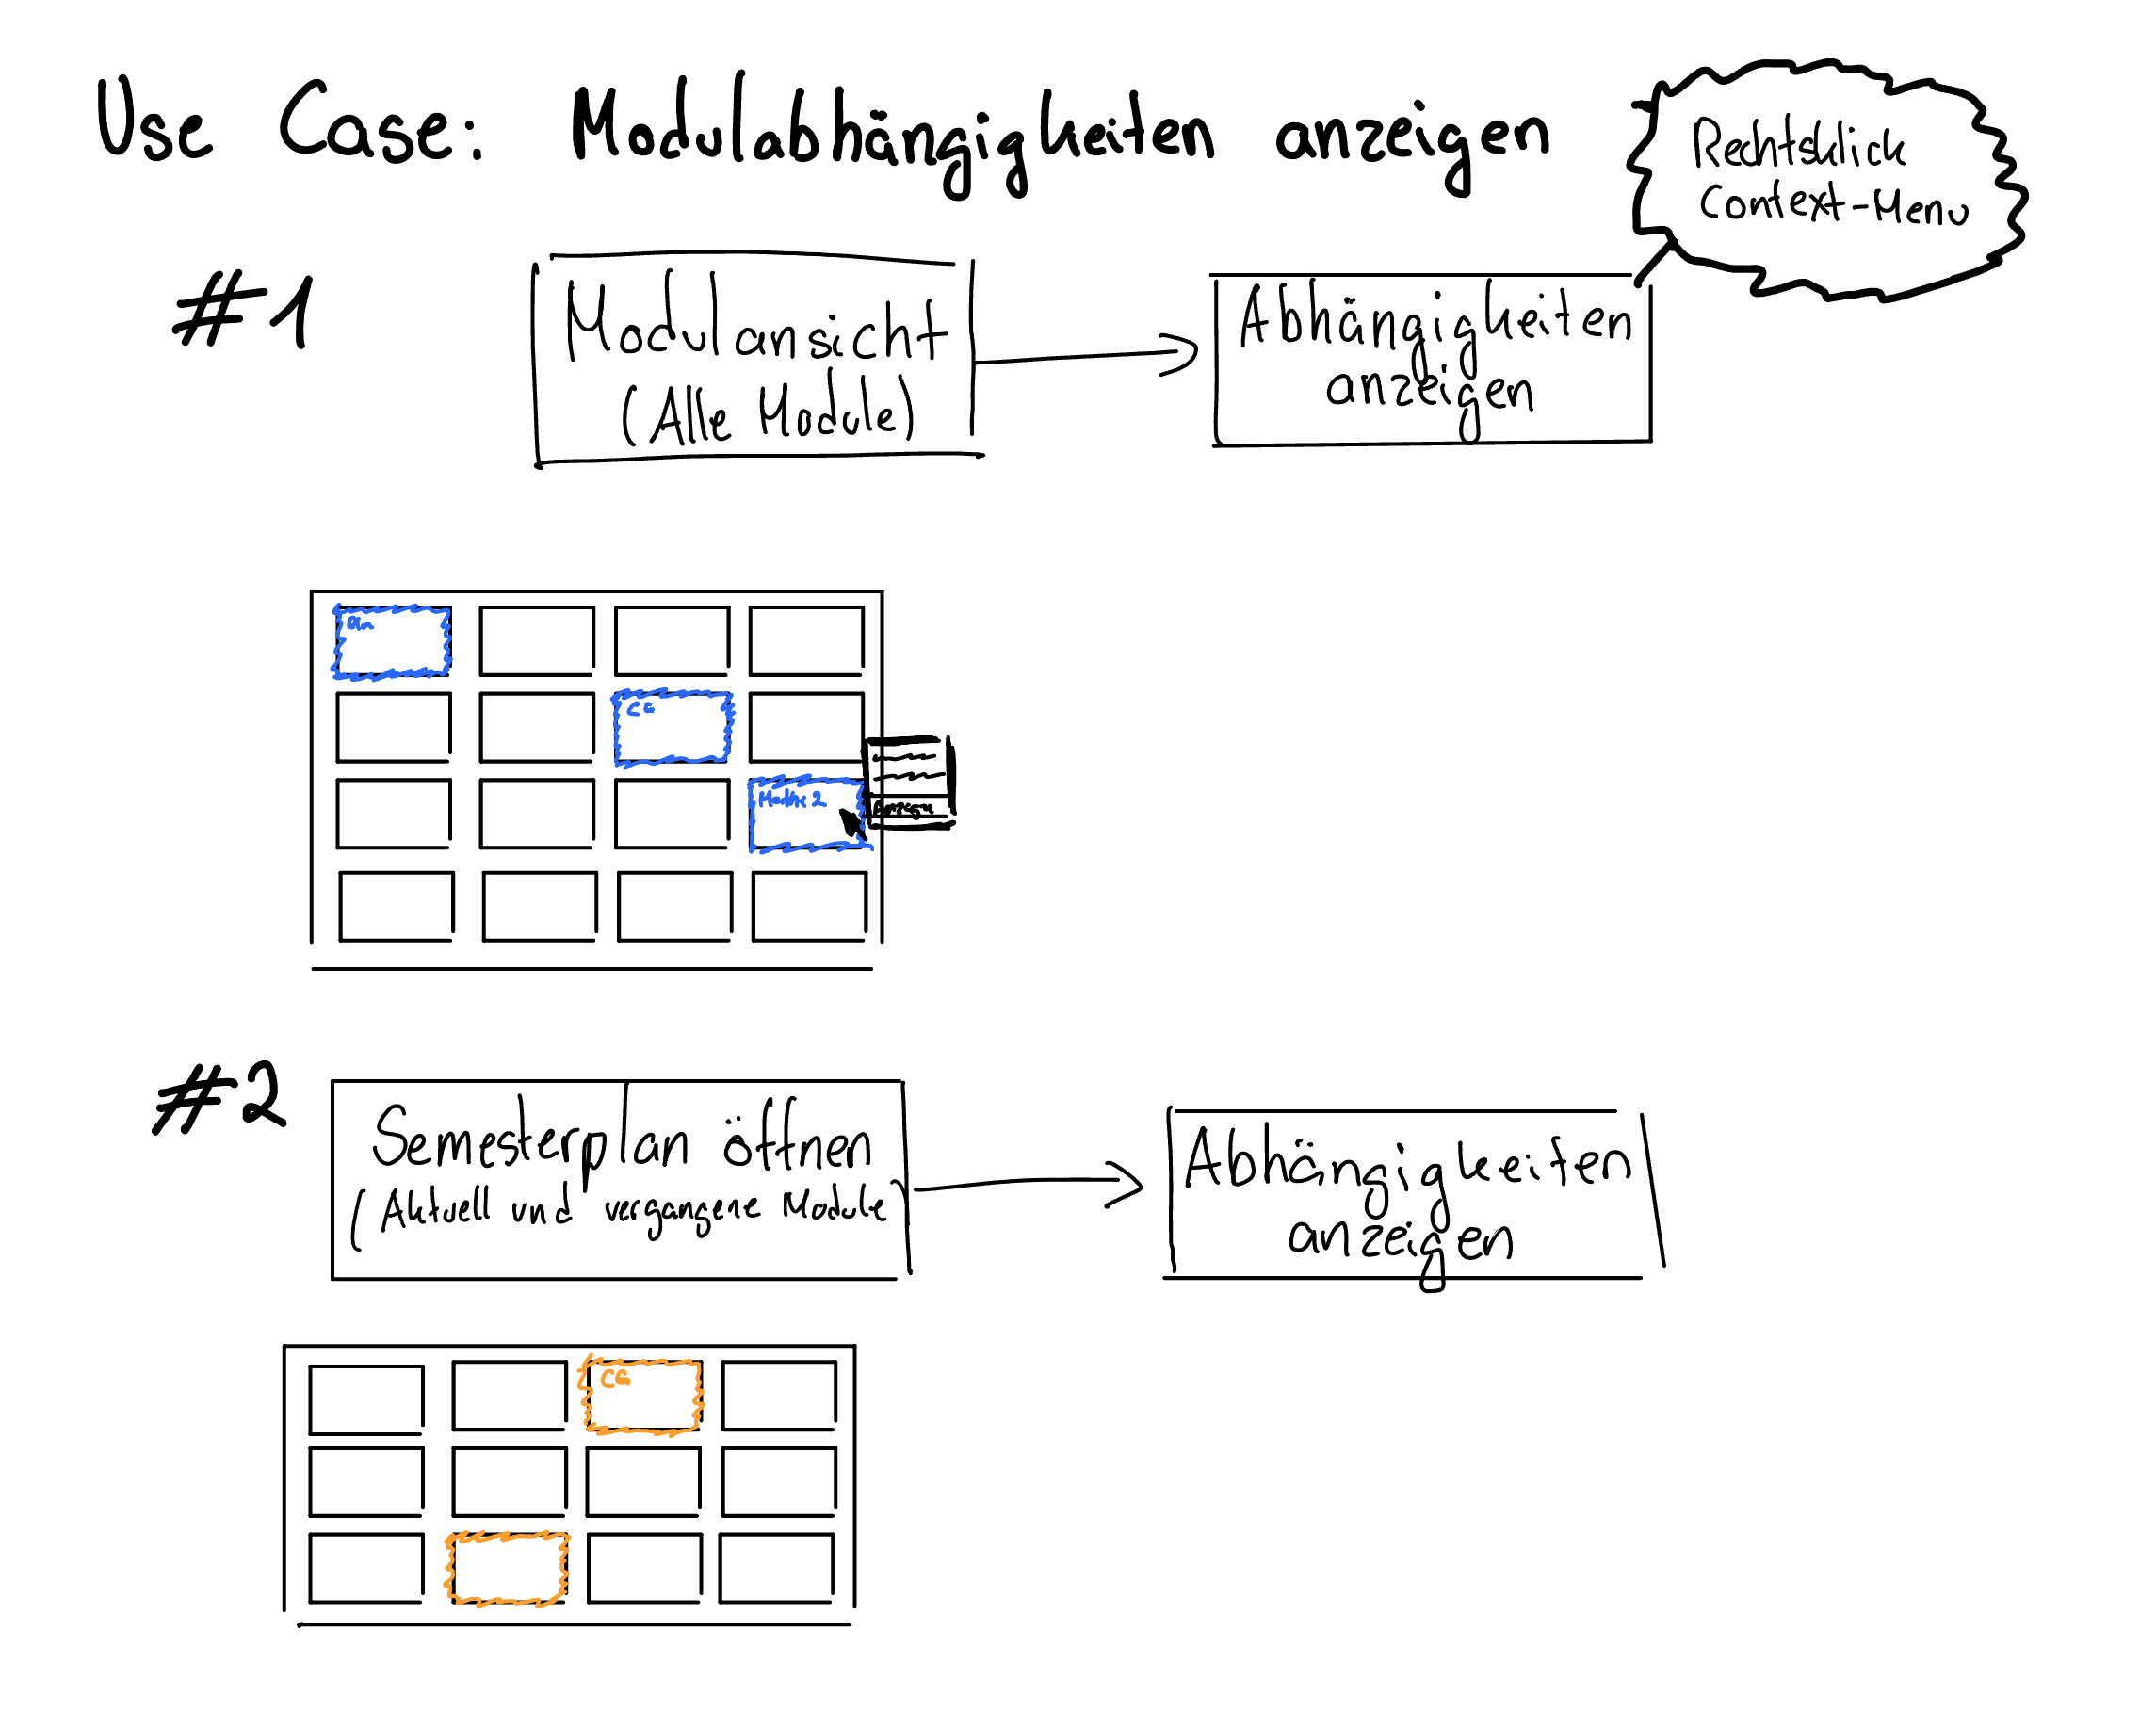 Use Case: Modulabhängigkeiten anzeigen
Rechtsklick
Context-Menu
#1
Modulansicht
(Alle Module)
Abhängigkeiten
anzeigen
CG
Mathe 2
#2
Semesterplan öffnen
(Aktuell und vergangene Module
Abhängigkeiten
anzeigen
CG